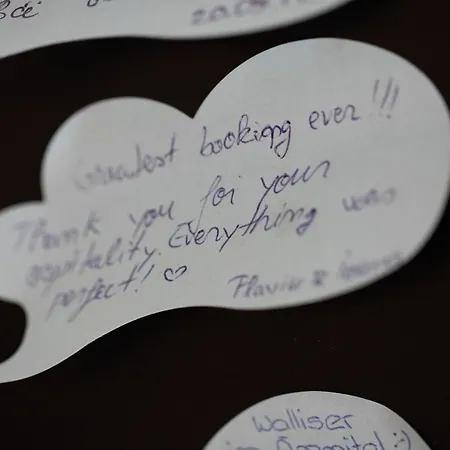 20.09.
Greatest booking ever!!!
Thank you for your
ospitality. Everything was
perfect! ♡
Flavia &
Walliser
in :)